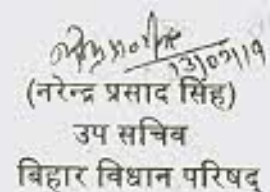 13/02/19
(नरेन्द्र प्रसाद सिंह)
उप सचिव
बिहार विधान परिषद्